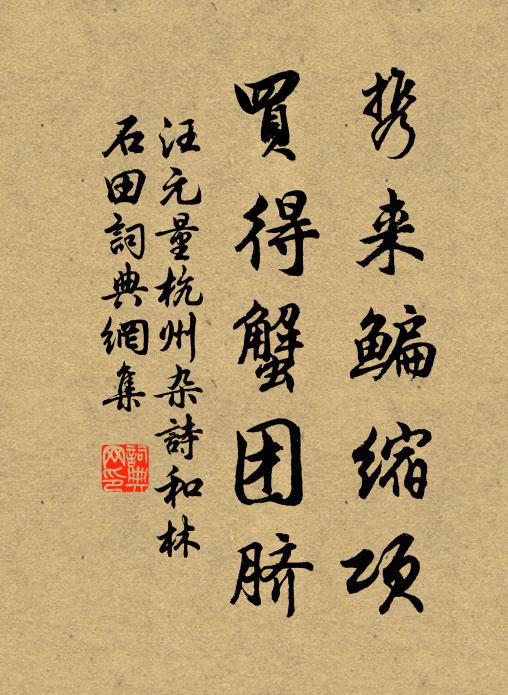 携来鳊缩项
買得蟹团脐
汪元量杭州杂詩和林
石田詞典網集
詞典网印